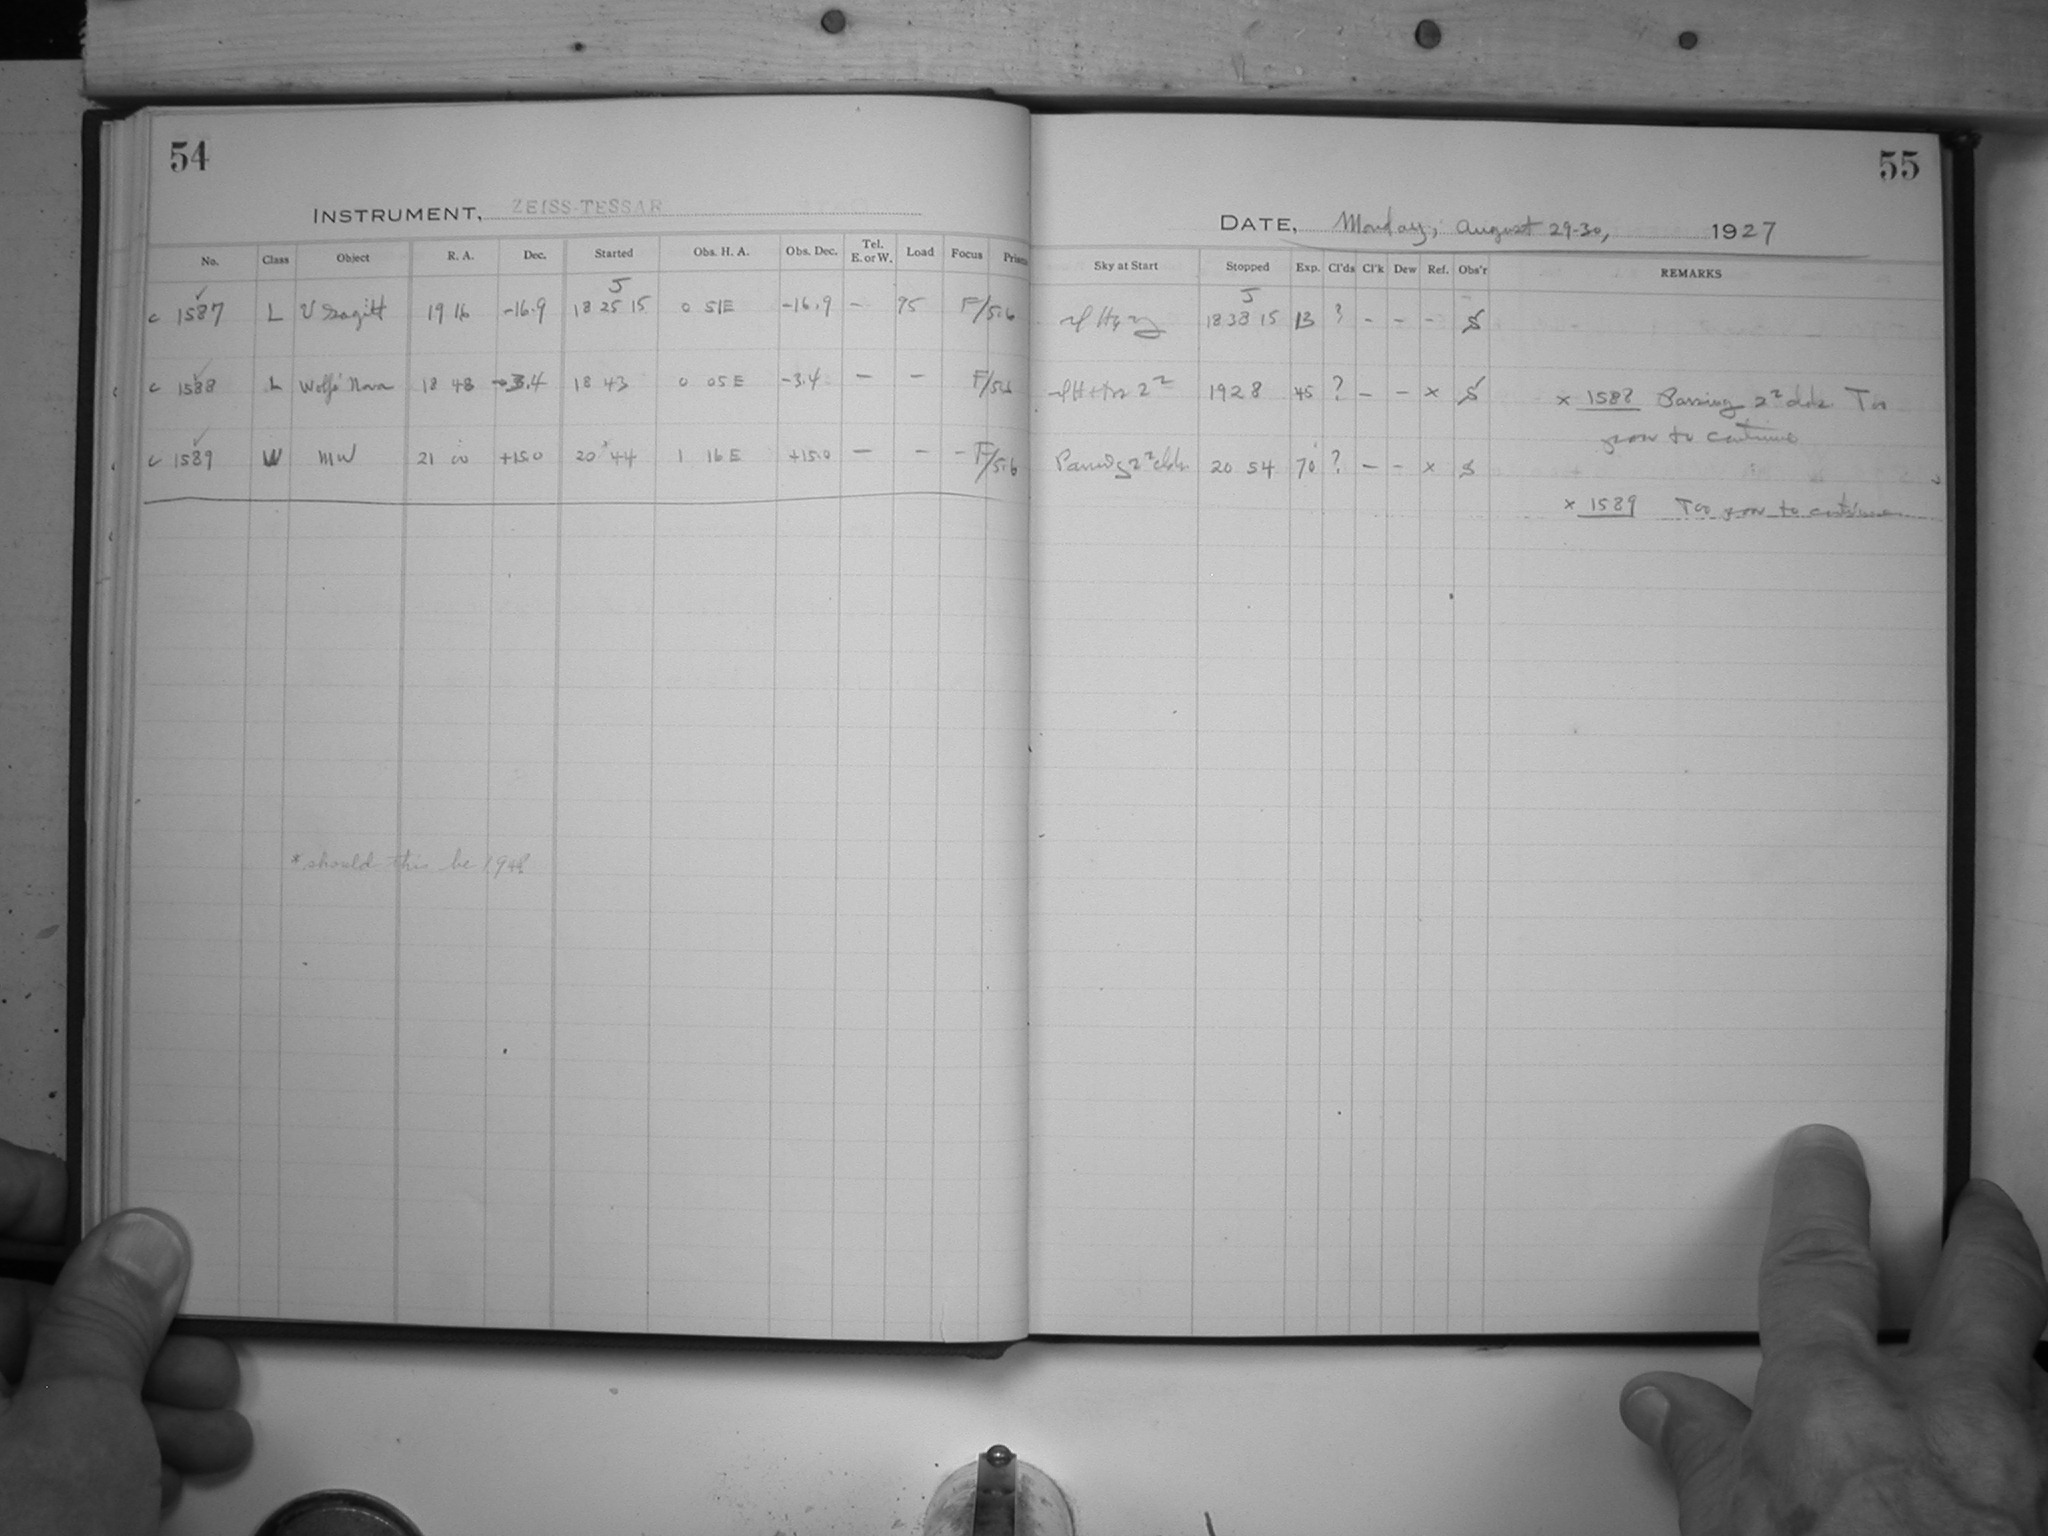 54
INSTRUMENT, ZEISS-TESSAR
No. Class Object R. A. Dec. Started Obs. H. A. Obs. Dec. Tel. E. or W. Load Focus Prism
c 1587 L V Sagitt 19 16 -16.9 18 25 15 0 51E -16.9 - 95 F/5.6
c 1588 L Wolf's Nova 18 48 -3.4 18 43 0 05E -3.4 - - F/5.6
c 1589 W MW 21 00 +15.0 20* 44 1 16E +15.0 - - - F/5.6
* should this be 1948
55
DATE, Monday, August 29-30, 1927
Sky at Start Stopped Exp. Cl'ds Cl'k Dew Ref. Obs'r REMARKS
18 38 15 13 ? - - - S
19 28 45 ? - - x S x 1588 Passing 2² clds. Too
poor to continue
Passing 2² clds 20 54 70 ? - - x S
x 1589 Too poor to continue